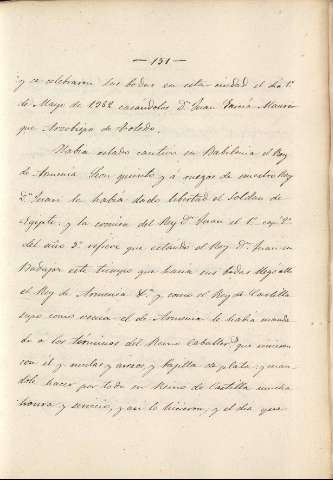 — 151 —
y se celebraron sus bodas en esta ciudad el dia 1º
de Mayo de 1382 casándolos Dn Juan Garcia Manri
que Arzobispo de Toledo.
Habia estado cautivo en Babilonia el Rey
de Armenia Leon quinto y á ruegos de nuestro Rey
Dn Juan le habia dado libertad el Soldan de
Egipto: y la cronica del Rey Dn Juan el 1º cap.
del año 5º refiere que estando el Rey Dn Juan en
Badajoz este tiempo que hacia sus bodas llegó alli
el Rey de Armenia &a y como el Rey de Castilla
supo como venia el de Armenia le habia manda
do á los términos del Reino Caballeros que viniesen
con él y mulas y arreos y bajilla de plata: y man
dole hacer por todo su Reino de Castilla mucha
honra y servicio, y asi lo hicieron, y el dia que